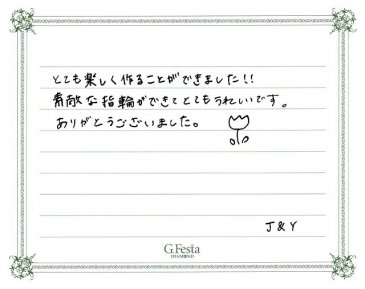 とても楽しく作ることができました!!
素敵な指輪ができてとてもうれしいです。
ありがとうございました。
J & Y
G.Festa
DIAMOND